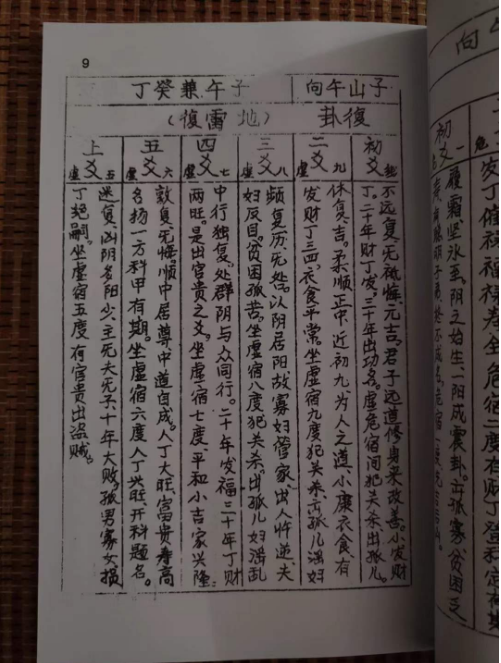 9
子山午向
子午兼癸丁
復卦
(地雷復)
初爻
危
不远复,无祗悔,元吉。君子远道修身来改善。小发财
丁。二十年财丁发,三十年出功名。虚危宿间犯关杀出孤儿。
二爻
虚九
休复,吉。柔顺正中,近初九为人之道,小康衣食,有
发财丁三四,衣食平常。坐虚宿九度犯关杀,出孤儿寡妇
三爻
虚八
频复厉,无处。以阴居阳故寡妇管家,出人忤逆,夫
妇反目。贫困孤苦。坐虚宿八度犯关杀。出孤儿妇淫乱
四爻
虚七
中行独复,处群阴与众同行。二十年发福,三十年丁财
两旺。是出官贵之爻。坐虚宿七度,平和小吉家兴隆。
五爻
虚六
敦复,无悔。顺中居尊中道自成。人丁大旺,富贵寿高
名扬一方科甲有期。坐虚宿六度人丁兴旺,开科题名。
上爻
虚五
迷复,凶。阴多阳少,主死夫无子,十年大败,孤男寡女损
丁绝嗣。坐虚宿五度有官贵出盗贼。
向
初
一
履霜,坚冰至。阴之始生,一阳成震卦。
孤寡贫困乏